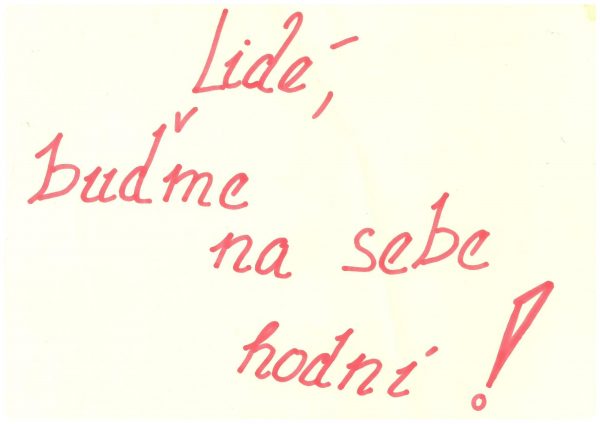 Lidé,
buďme
na sebe
hodní!